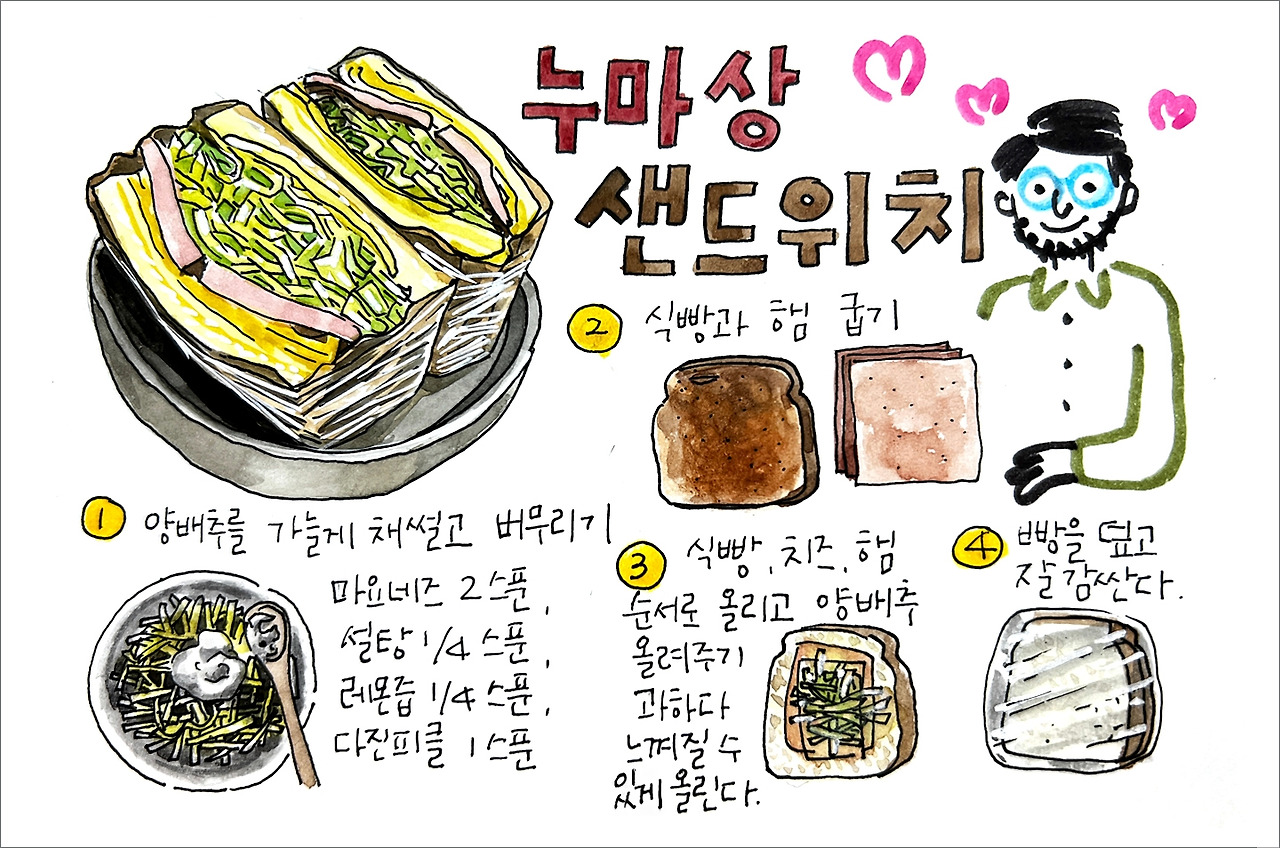 누마상
샌드위치
① 양배추를 가늘게 채썰고 버무리기
마요네즈 2스푼,
설탕 1/4 스푼,
레몬즙 1/4 스푼,
다진피클 1스푼
② 식빵과 햄 굽기
③ 식빵, 치즈, 햄
순서로 올리고 양배추
올려주기
과하다
느껴질 수
있게 올린다.
④ 빵을 덮고
잘 감싼다.